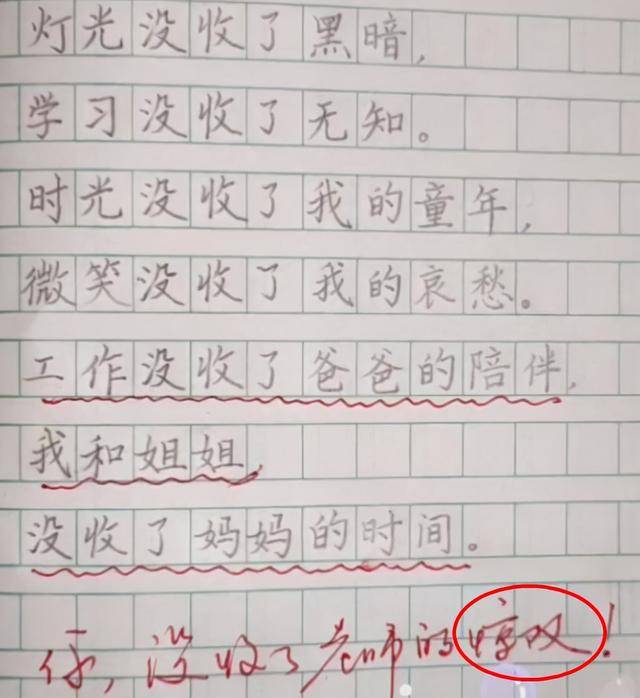 灯光没收了黑暗,
学习没收了无知。
时光没收了我的童年,
微笑没收了我的哀愁。
工作没收了爸爸的陪伴,
我和姐姐,
没收了妈妈的时间。
你,没收了老师的惊叹!